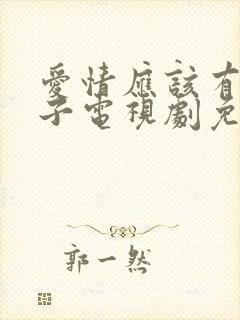 愛情應該有
子電視劇免
郭一然